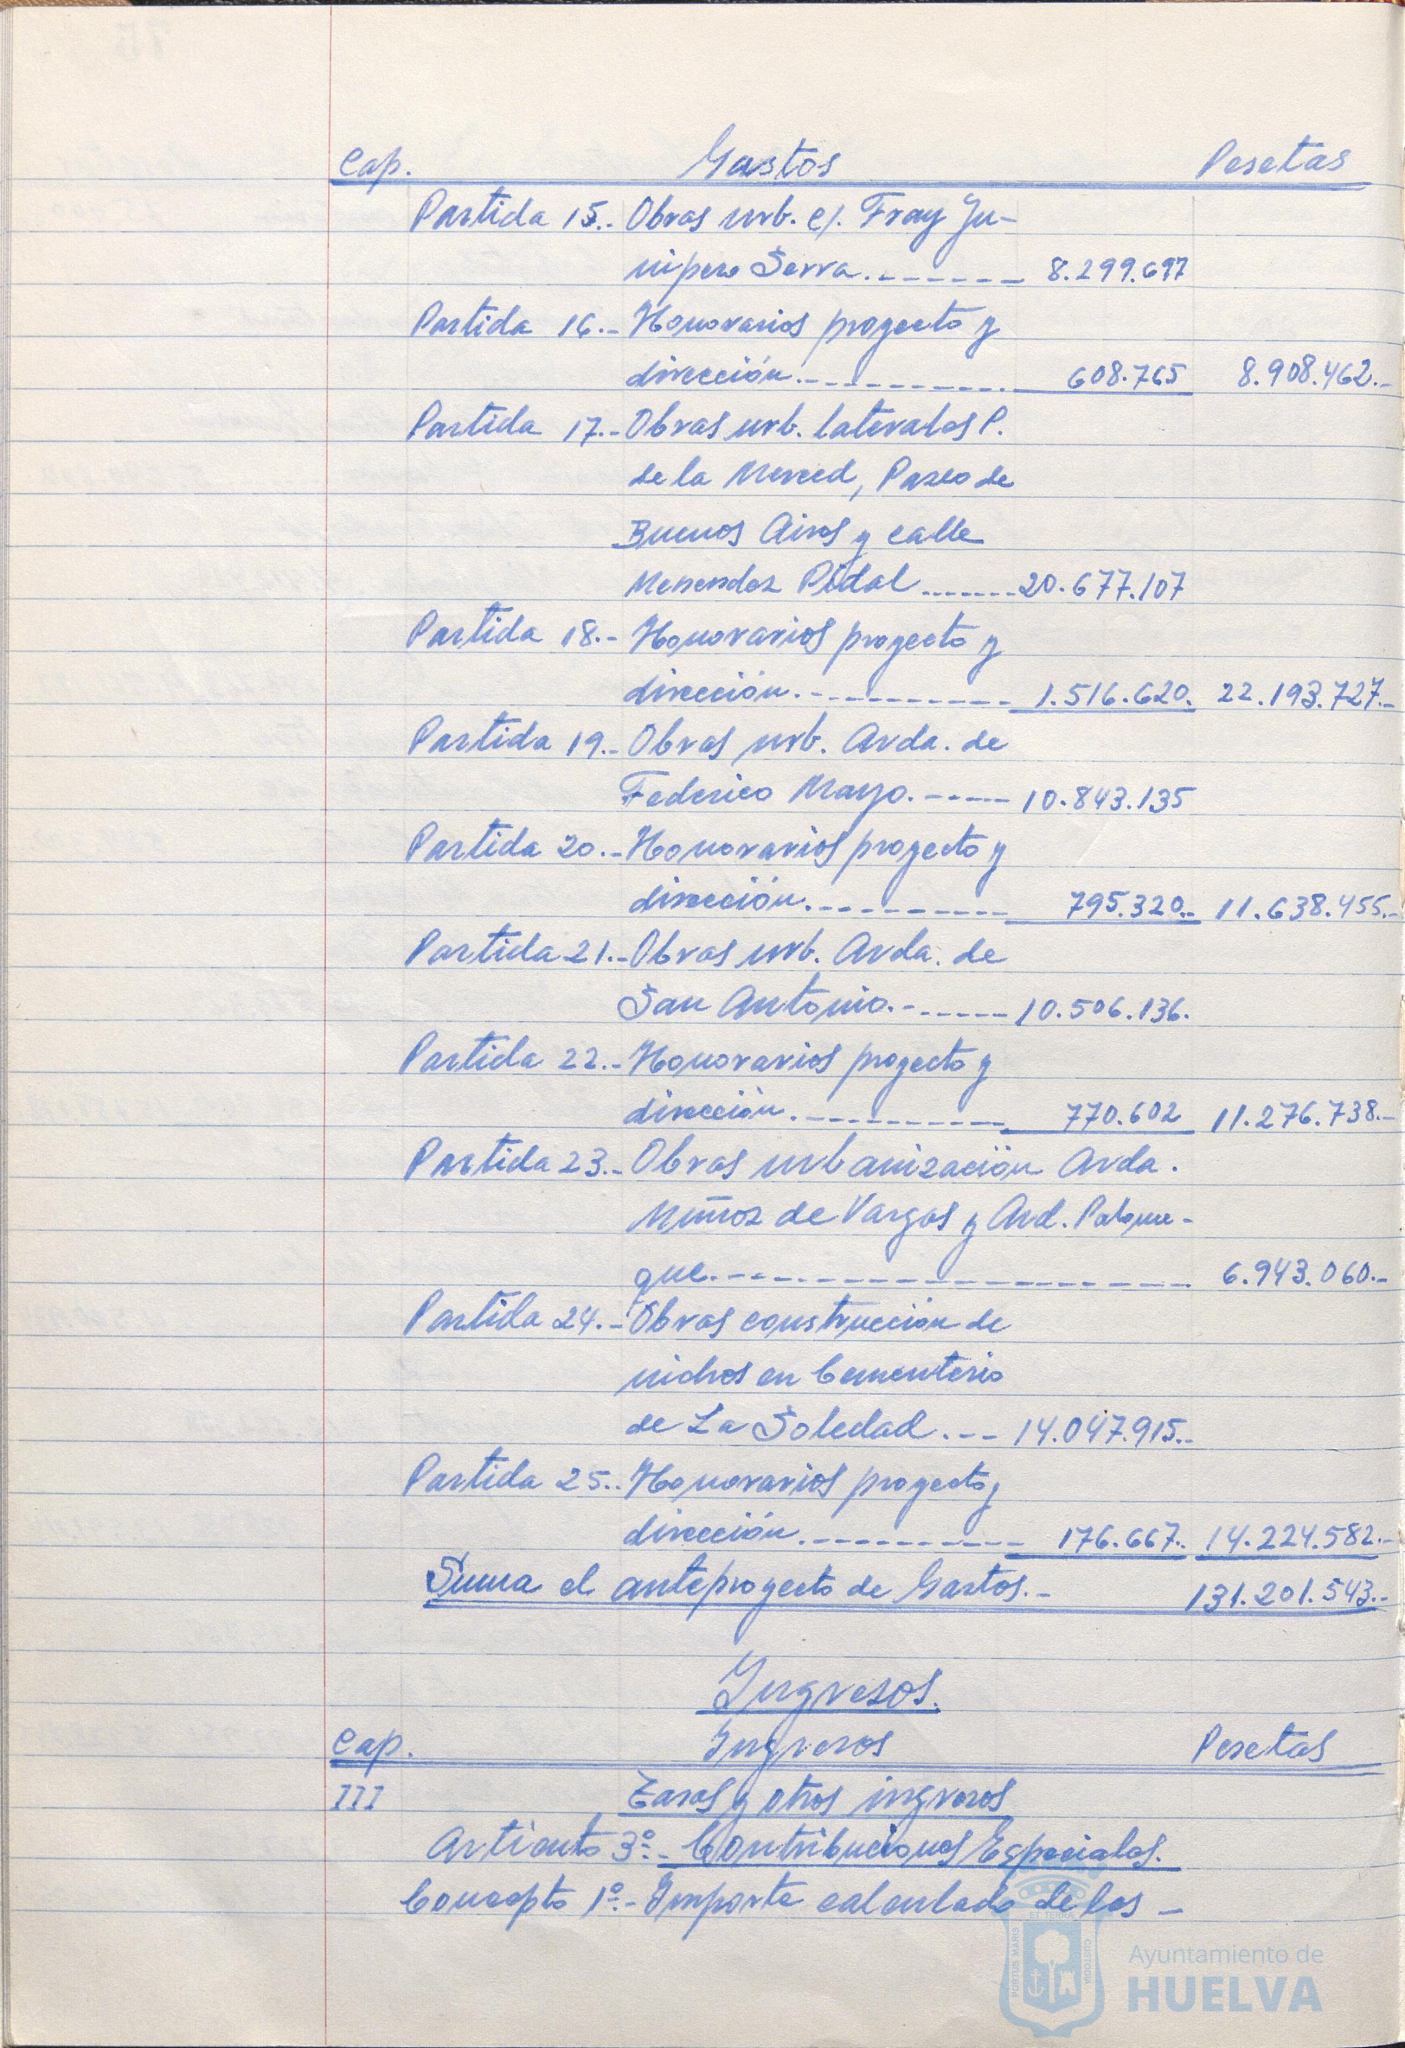 Cap. Gastos Pesetas
Partida 15.- Obras urb. c/. Fray Ju-
nipero Serra.------- 8.299.697
Partida 16.- Honorarios proyecto y
dirección.----------- 608.765 8.908.462.-
Partida 17.- Obras urb. laterales P.
de la Merced, Paseo de
Buenos Aires y calle
Menendez Pidal.------- 20.677.107
Partida 18.- Honorarios proyecto y
dirección.----------- 1.516.620. 22.193.727.-
Partida 19.- Obras urb. Avda. de
Federico Mayo.------ 10.843.135
Partida 20.- Honorarios proyecto y
dirección.---------- 795.320.- 11.638.455.-
Partida 21.- Obras urb. Avda. de
San Antonio.------- 10.506.136.
Partida 22.- Honorarios proyecto y
dirección.---------- 770.602 11.276.738.-
Partida 23.- Obras urbanización Avda.
Muñoz de Vargas y Avd. Palome-
que.------------------- 6.943.060.-
Partida 24.- Obras construcción de
nichos en Cementerio
de La Soledad.--- 14.047.915.-
Partida 25.- Honorarios proyecto y
dirección.---------- 176.667.- 14.224.582.-
Suma el anteproyecto de Gastos.- 131.201.543.-
Ingresos.
Cap. Ingresos Pesetas
III Tasas y otros ingresos
Articulo 3º.- Contribuciones Especiales.
Concepto 1º.- Importe calculado de las -
PORTUS MARIS ET TERRAE CUSTODIA
Ayuntamiento de
HUELVA